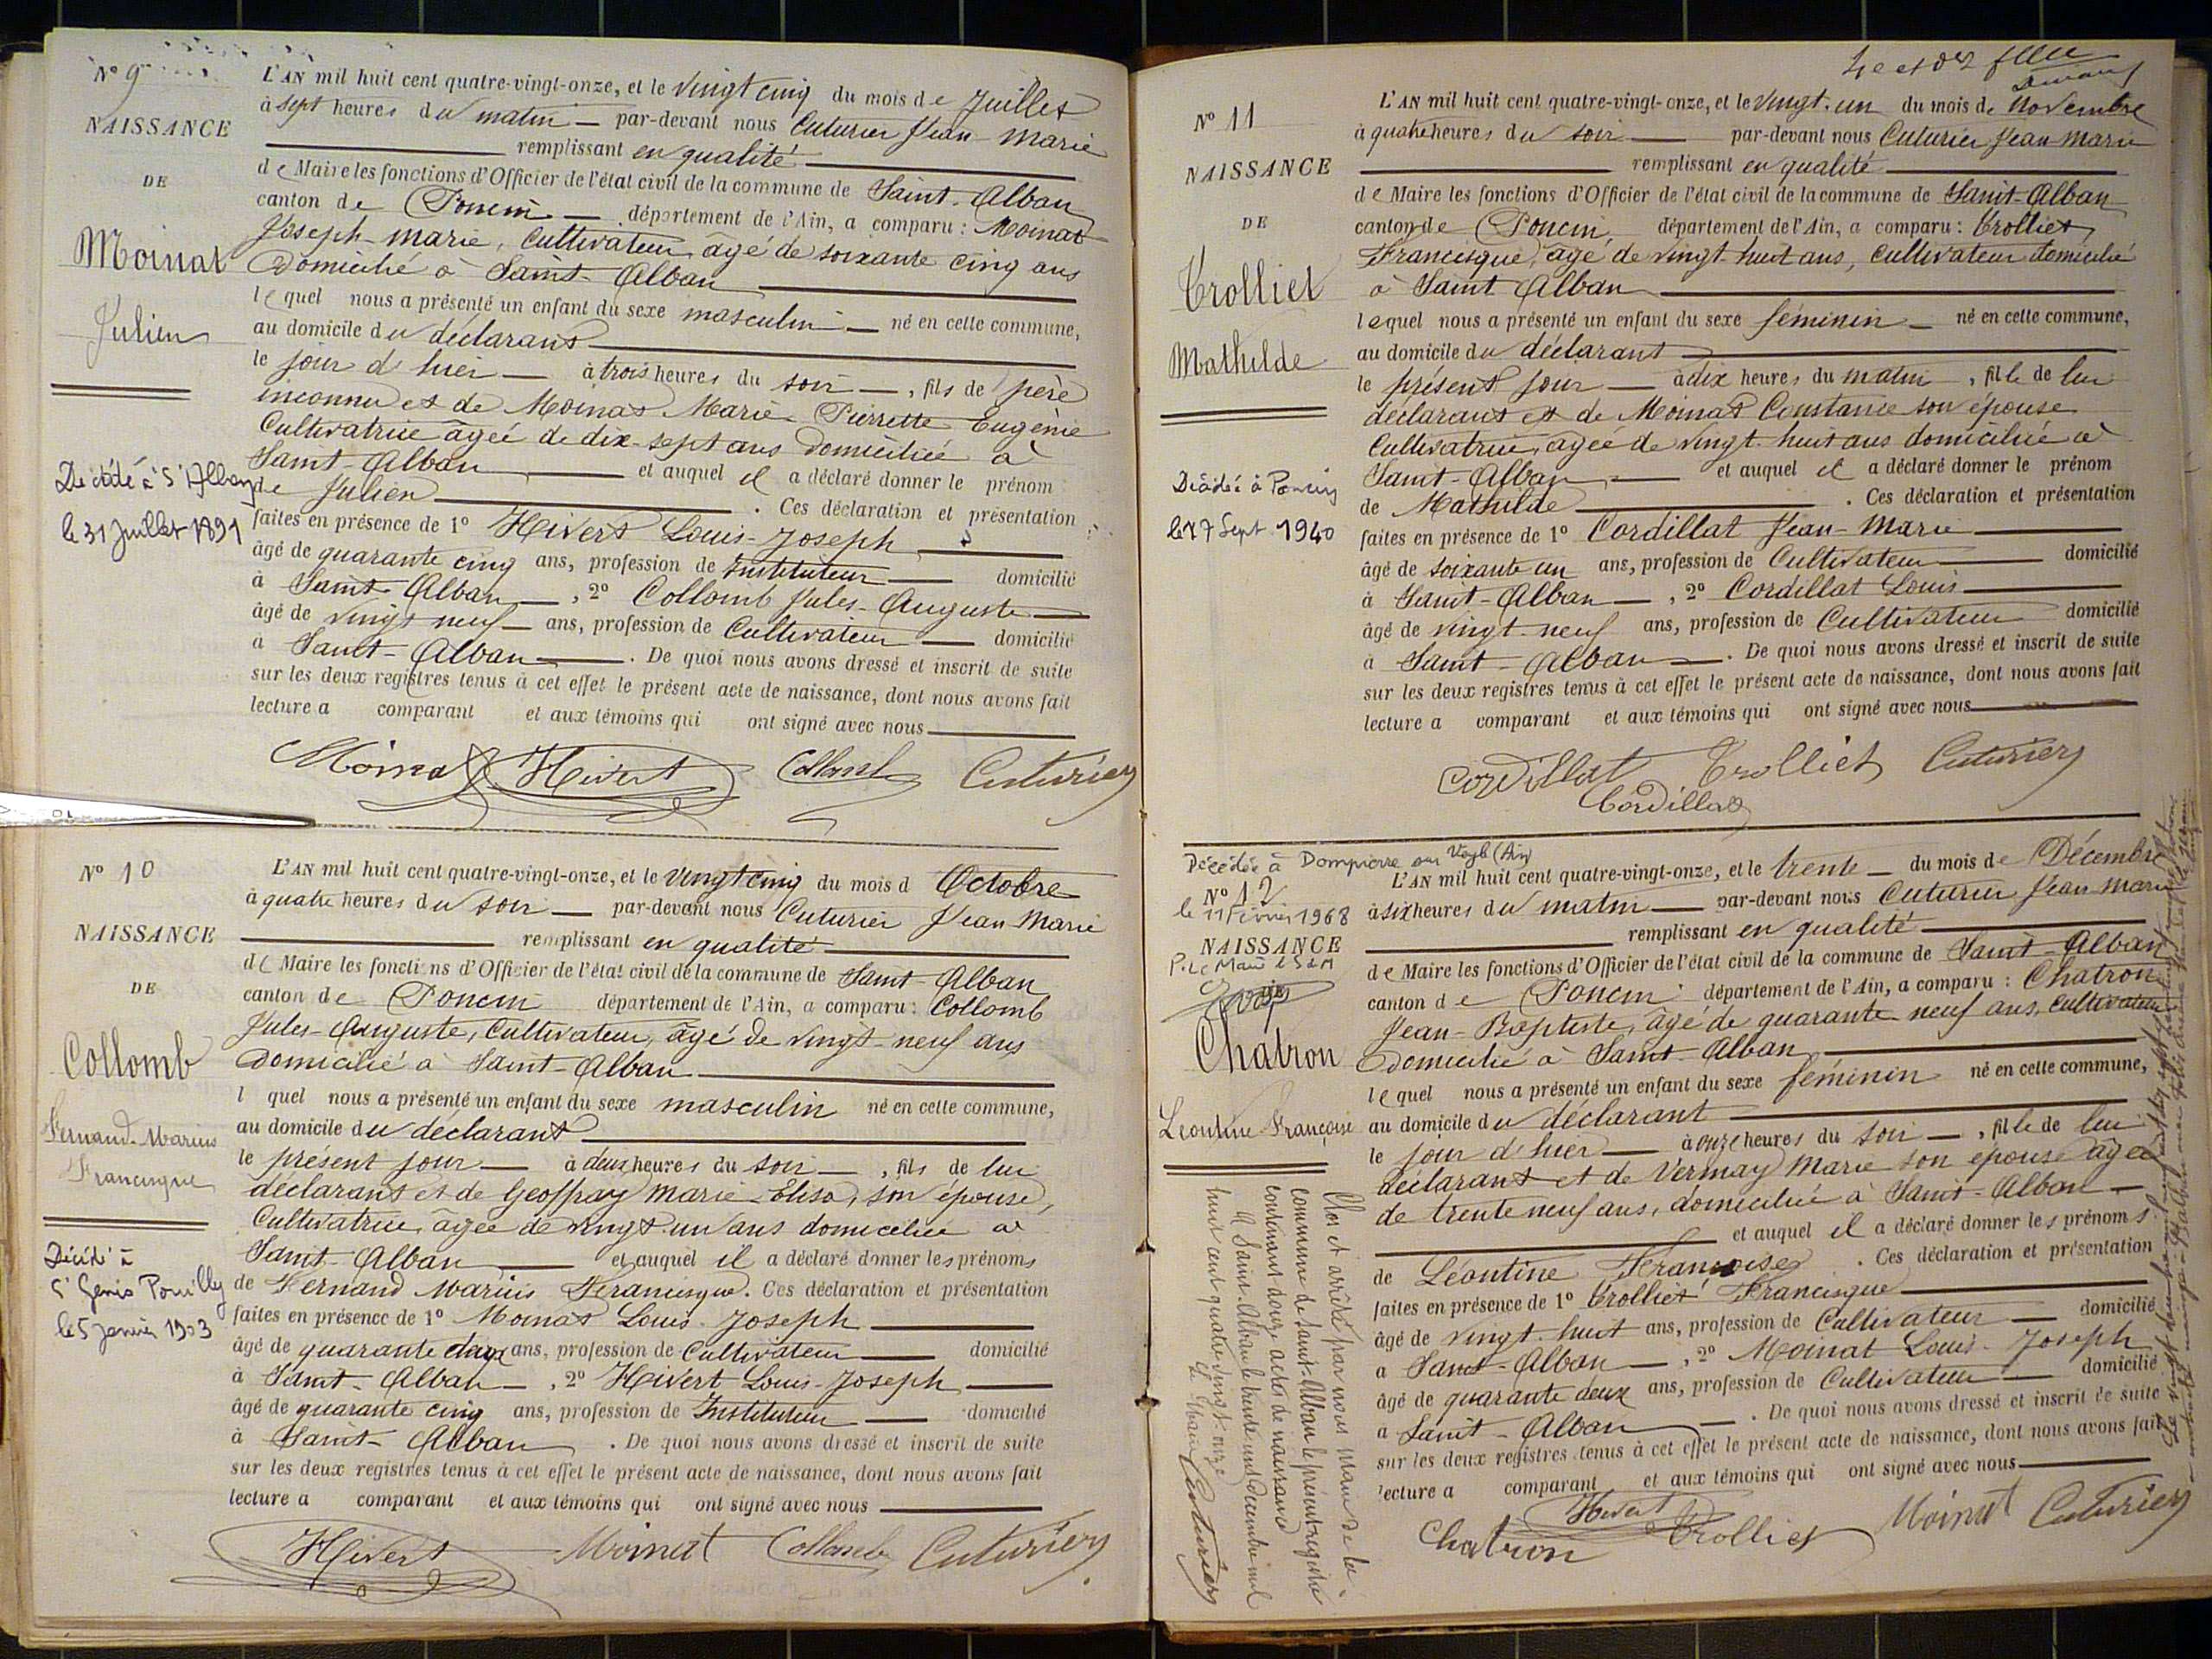 N° 9
NAISSANCE
DE
Moinat
Julien
Décédé à St Alban
le 31 Juillet 1891
L'AN mil huit cent quatre-vingt-onze, et le vingt cinq du mois de Juillet
à sept heures du matin par-devant nous Cuturier Jean-Marie
remplissant en qualité
de Maire les fonctions d'Officier de l'état civil de la commune de Saint-Alban
canton de Poncin département de l'Ain, a comparu : Moinat
Joseph-Marie, Cultivateur âgé de soixante cinq ans
domicilié à Saint-Alban
lequel nous a présenté un enfant du sexe masculin né en cette commune,
au domicile du déclarant
le jour d'hier à trois heures du soir, fils de père
inconnu et de Moinat Marie Pierrette Eugènie
Cultivatrice âgée de dix-sept ans domiciliée à
Saint-Alban et auquel il a déclaré donner le prénom
de Julien. Ces déclaration et présentation
faites en présence de 1° Hivert Louis-Joseph
âgé de quarante cinq ans, profession de Instituteur domicilié
à Saint-Alban, 2° Collomb Jules-Auguste
âgé de vingt neuf ans, profession de Cultivateur domicilié
à Saint-Alban. De quoi nous avons dressé et inscrit de suite
sur les deux registres tenus à cet effet le présent acte de naissance, dont nous avons fait
lecture a comparant et aux témoins qui ont signé avec nous
Moinat Hivert Collomb Cuturier
N° 10
NAISSANCE
DE
Collomb
Fernand-Marius
Francisque
Décédé à
St Genis Pouilly
le 5 janvier 1903
L'AN mil huit cent quatre-vingt-onze, et le vingt cinq du mois d Octobre
à quatre heures du soir par-devant nous Cuturier Jean Marie
remplissant en qualité
de Maire les fonctions d'Officier de l'état civil de la commune de Saint-Alban
canton de Poncin département de l'Ain, a comparu : Collomb
Jules-Auguste, Cultivateur, âgé de vingt-neuf ans
domicilié à Saint-Alban
l quel nous a présenté un enfant du sexe masculin né en cette commune,
au domicile du déclarant
le présent jour à deux heures du soir, fils de lui
déclarant et de Geoffray Marie-Elisa, son épouse,
Cultivatrice âgée de vingt un ans domiciliée à
Saint-Alban et auquel il a déclaré donner les prénoms
de Fernand Marius Francisque. Ces déclaration et présentation
faites en présence de 1° Moinat Louis-Joseph
âgé de quarante deux ans, profession de Cultivateur domicilié
à Saint-Alban, 2° Hivert Louis-Joseph
âgé de quarante cinq ans, profession de Instituteur domicilié
à Saint-Alban. De quoi nous avons dressé et inscrit de suite
sur les deux registres tenus à cet effet le présent acte de naissance, dont nous avons fait
lecture a comparant et aux témoins qui ont signé avec nous
Hivert Moinat Collomb Cuturier
N° 11
NAISSANCE
DE
Trolliet
Mathilde
Décédée à Poncin
le 17 Sept 1940
L'AN mil huit cent quatre-vingt-onze, et le vingt-un du mois de Novembre
à quatre heures du soir par-devant nous Cuturier Jean-Marie
remplissant en qualité
de Maire les fonctions d'Officier de l'état civil de la commune de Saint-Alban
canton de Poncin département de l'Ain, a comparu : Trolliet
Francisque, âgé de vingt-huit ans, cultivateur domicilié
à Saint Alban
lequel nous a présenté un enfant du sexe féminin né en cette commune,
au domicile du déclarant
le présent jour à dix heures du matin, fille de lui
déclarant et de Moinat Constance son épouse
Cultivatrice, âgée de vingt-huit ans domiciliée à
Saint-Alban et auquel il a déclaré donner le prénom
de Mathilde. Ces déclaration et présentation
faites en présence de 1° Cordillat Jean-Marie
âgé de soixante un ans, profession de Cultivateur domicilié
à Saint-Alban, 2° Cordillat Louis
âgé de vingt-neuf ans, profession de Cultivateur domicilié
à Saint-Alban. De quoi nous avons dressé et inscrit de suite
sur les deux registres tenus à cet effet le présent acte de naissance, dont nous avons fait
lecture a comparant et aux témoins qui ont signé avec nous
Cordillat Trolliet Cuturier
Cordillat
Décédée à Dompierre sur Veyle (Ain)
N° 12
le 11 Février 1968
NAISSANCE
Chatron
Léontine Françoise
L'AN mil huit cent quatre-vingt-onze, et le trente du mois de Décembre
à six heures du matin par-devant nous Cuturier Jean Marie
remplissant en qualité
de Maire les fonctions d'Officier de l'état civil de la commune de Saint-Alban
canton de Poncin département de l'Ain, a comparu : Chatron
Jean-Baptiste, âgé de quarante neuf ans, Cultivateur
domicilié à Saint-Alban
lequel nous a présenté un enfant du sexe féminin né en cette commune,
au domicile du déclarant
le jour d'hier à onze heures du soir, fille de lui
déclarant et de Vermay Marie son épouse âgée
de trente neuf ans, domiciliée à Saint-Alban
et auquel il a déclaré donner les prénoms
de Léontine Françoise. Ces déclaration et présentation
faites en présence de 1° Trolliet Francisque
âgé de vingt-huit ans, profession de Cultivateur domicilié
à Saint-Alban, 2° Moinat Louis-Joseph
âgé de quarante deux ans, profession de Cultivateur domicilié
à Saint-Alban. De quoi nous avons dressé et inscrit de suite
sur les deux registres tenus à cet effet le présent acte de naissance, dont nous avons fait
lecture a comparant et aux témoins qui ont signé avec nous
Hivert
Chatron Trolliet Moinat Cuturier
Clos et arrêté par nous maire de la
commune de Saint-Alban le présent registre
contenant douze actes de naissance
A Saint-Alban le trente un Décembre mil
huit cent quatre vingt onze
Le Maire Cuturier